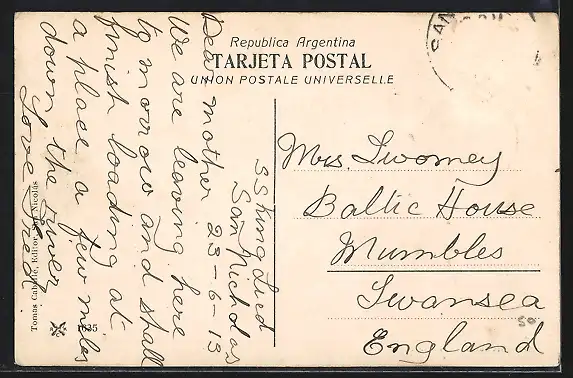 Republica Argentina
TARJETA POSTAL
UNION POSTALE UNIVERSELLE
SAN
S S King Lud
San Nicholas
23-6-13
Dear mother
We are leaving here
tomorrow and shall
finish loading at
a place a few miles
down the river
Love Fred
Mrs. Twomey
Baltic House
Mumbles
Swansea
England
50
Tomas Editor, Nicolás
1635